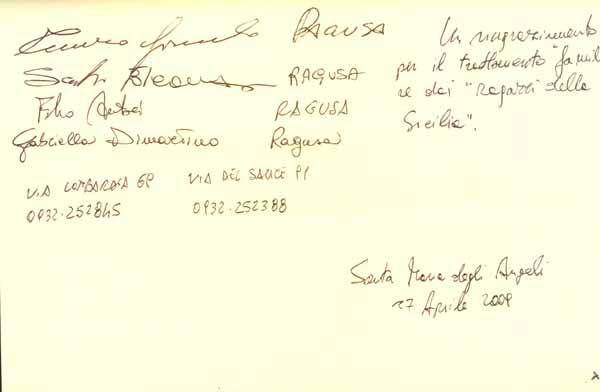 RAGUSA
RAGUSA
RAGUSA
Gabriella Dimartino Ragusa
Un ringraziamento
per il trattamento "famil
re dei "Ragazzi della
Sicilia".
VIA LOMBARDIA
0932-252845
VIA DEL SALICE
0932-252388
Santa Maria degli Angeli
27 Aprile 2009